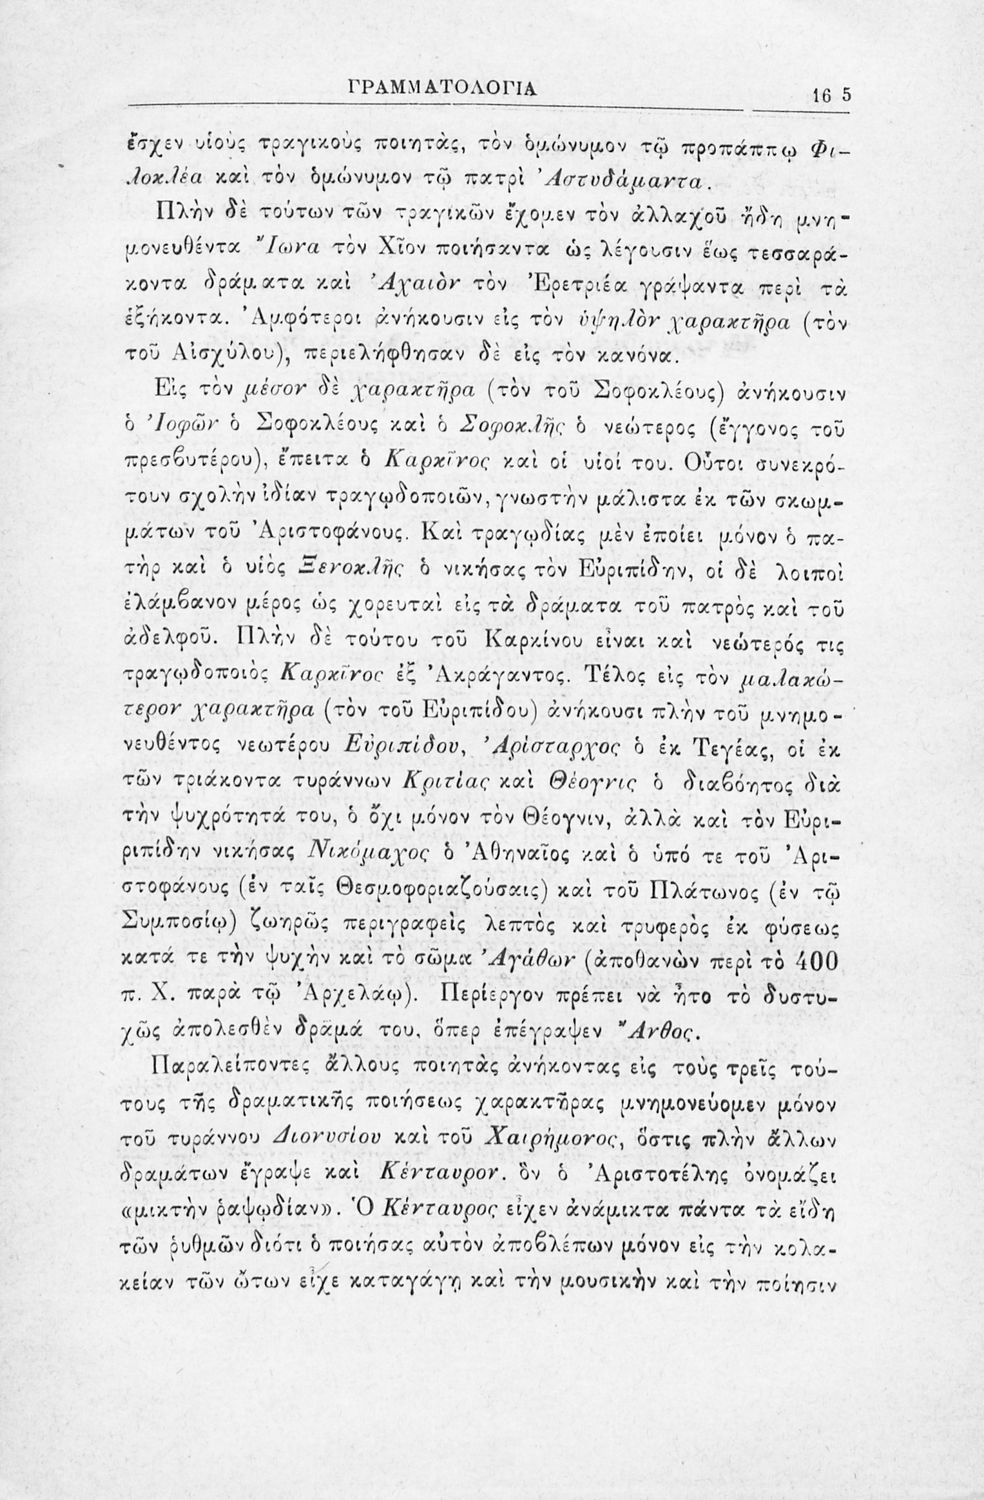 ΓΡΑΜΜΑΤΟΛΟΓΙΑ 16 5
ἔσχεν υἱοὺς τραγικοὺς ποιητὰς, τὸν ὁμώνυμον τῷ προπάππῳ Φι-
λοκλέα καὶ τὸν ὁμώνυμον τῷ πατρὶ Ἀστυδάμαντα.
Πλὴν δὲ τούτων τῶν τραγικῶν ἔχομεν τὸν ἀλλαχοῦ ἤδη μνη-
μονευθέντα Ἴωνα τὸν Χῖον ποιήσαντα ὡς λέγουσιν ἕως τεσσαρά-
κοντα δράματα καὶ Ἀχαιὸν τὸν Ἐρετριέα γράψαντα περὶ τὰ
ἑξήκοντα. Ἀμφότεροι ἀνήκουσιν εἰς τὸν ὑψηλὸν χαρακτῆρα (τὸν
τοῦ Αἰσχύλου), περιελήφθησαν δὲ εἰς τὸν κανόνα.
Εἰς τὸν μέσον δὲ χαρακτῆρα (τὸν τοῦ Σοφοκλέους) ἀνήκουσιν
ὁ Ἰοφῶν ὁ Σοφοκλέους καὶ ὁ Σοφοκλῆς ὁ νεώτερος (ἔγγονος τοῦ
πρεσβυτέρου), ἔπειτα ὁ Καρκῖνος καὶ οἱ υἱοί του. Οὗτοι συνεκρό-
τουν σχολὴν ἰδίαν τραγῳδοποιῶν, γνωστὴν μάλιστα ἐκ τῶν σκωμ-
μάτων τοῦ Ἀριστοφάνους. Καὶ τραγῳδίας μὲν ἐποίει μόνον ὁ πα-
τὴρ καὶ ὁ υἱὸς Ξενοκλῆς ὁ νικήσας τὸν Εὐριπίδην, οἱ δὲ λοιποὶ
ἐλάμβανον μέρος ὡς χορευταὶ εἰς τὰ δράματα τοῦ πατρὸς καὶ τοῦ
ἀδελφοῦ. Πλὴν δὲ τούτου τοῦ Καρκίνου εἶναι καὶ νεώτερός τις
τραγῳδοποιὸς Καρκῖνος ἐξ Ἀκράγαντος. Τέλος εἰς τὸν μαλακώ-
τερον χαρακτῆρα (τὸν τοῦ Εὐριπίδου) ἀνήκουσι πλὴν τοῦ μνημο-
νευθέντος νεωτέρου Εὐριπίδου, Ἀρίσταρχος ὁ ἐκ Τεγέας, οἱ ἐκ
τῶν τριάκοντα τυράννων Κριτίας καὶ Θέογνις ὁ διαβόητος διὰ
τὴν ψυχρότητά του, ὁ ὄχι μόνον τὸν Θέογνιν, ἀλλὰ καὶ τὸν Εὐρι-
ριπίδην νικήσας Νικόμαχος ὁ Ἀθηναῖος καὶ ὁ ὑπό τε τοῦ Ἀρι-
στοφάνους (ἐν ταῖς Θεσμοφοριαζούσαις) καὶ τοῦ Πλάτωνος (ἐν τῷ
Συμποσίῳ) ζωηρῶς περιγραφεὶς λεπτὸς καὶ τρυφερὸς ἐκ φύσεως
κατά τε τὴν ψυχὴν καὶ τὸ σῶμα Ἀγάθων (ἀποθανὼν περὶ τὸ 400
π. Χ. παρὰ τῷ Ἀρχελάῳ). Περίεργον πρέπει νὰ ἦτο τὸ δυστυ-
χῶς ἀπολεσθὲν δρᾶμά του, ὅπερ ἐπέγραψεν Ἄνθος.
Παραλείποντες ἄλλους ποιητὰς ἀνήκοντας εἰς τοὺς τρεῖς τού-
τους τῆς δραματικῆς ποιήσεως χαρακτῆρας μνημονεύομεν μόνον
τοῦ τυράννου Διονυσίου καὶ τοῦ Χαιρήμονος, ὅστις πλὴν ἄλλων
δραμάτων ἔγραψε καὶ Κένταυρον. ὃν ὁ Ἀριστοτέλης ὀνομάζει
«μικτὴν ῥαψῳδίαν». Ὁ Κένταυρος εἶχεν ἀνάμικτα πάντα τὰ εἴδη
τῶν ῥυθμῶν διότι ὁ ποιήσας αὐτὸν ἀποβλέπων μόνον εἰς τὴν κολα-
κείαν τῶν ὤτων εἶχε καταγάγῃ καὶ τὴν μουσικὴν καὶ τὴν ποίησιν